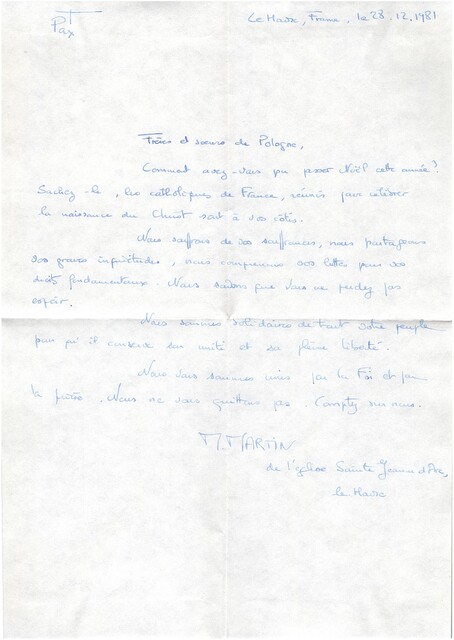 Pax
Le Havre, France, le 28.12.1981
Frères et soeurs de Pologne,
Comment avez-vous pu passer Noël cette année?
Sachez-le, les catholiques de France, réunis pour célébrer
la naissance du Christ sont à vos côtés.
Nous souffrons de vos souffrances, nous partageons
vos graves inquiétudes, nous comprenons vos luttes pour vos
droits fondamentaux. Nous savons que vous ne perdez pas
espoir.
Nous sommes solidaires de tout votre peuple
pour qu'il conserve son unité et sa pleine liberté.
Nous vous sommes unis par la Foi et par
la prière. Nous ne vous quittons pas. Comptez sur nous.
M. MARTIN
de l'église Sainte Jeanne d'Arc,
le Havre